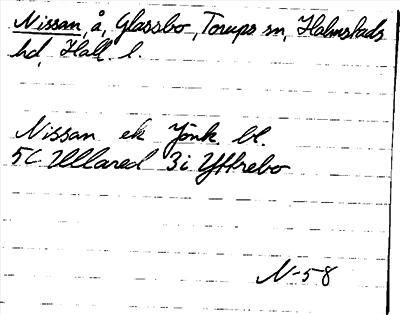 Nissan, å, Glassbo, Torups sn, Halmstads
hd, Hall. l.
Nissan ek Jönk. bl.
5C Ullared 3i Yttrebo
N-58